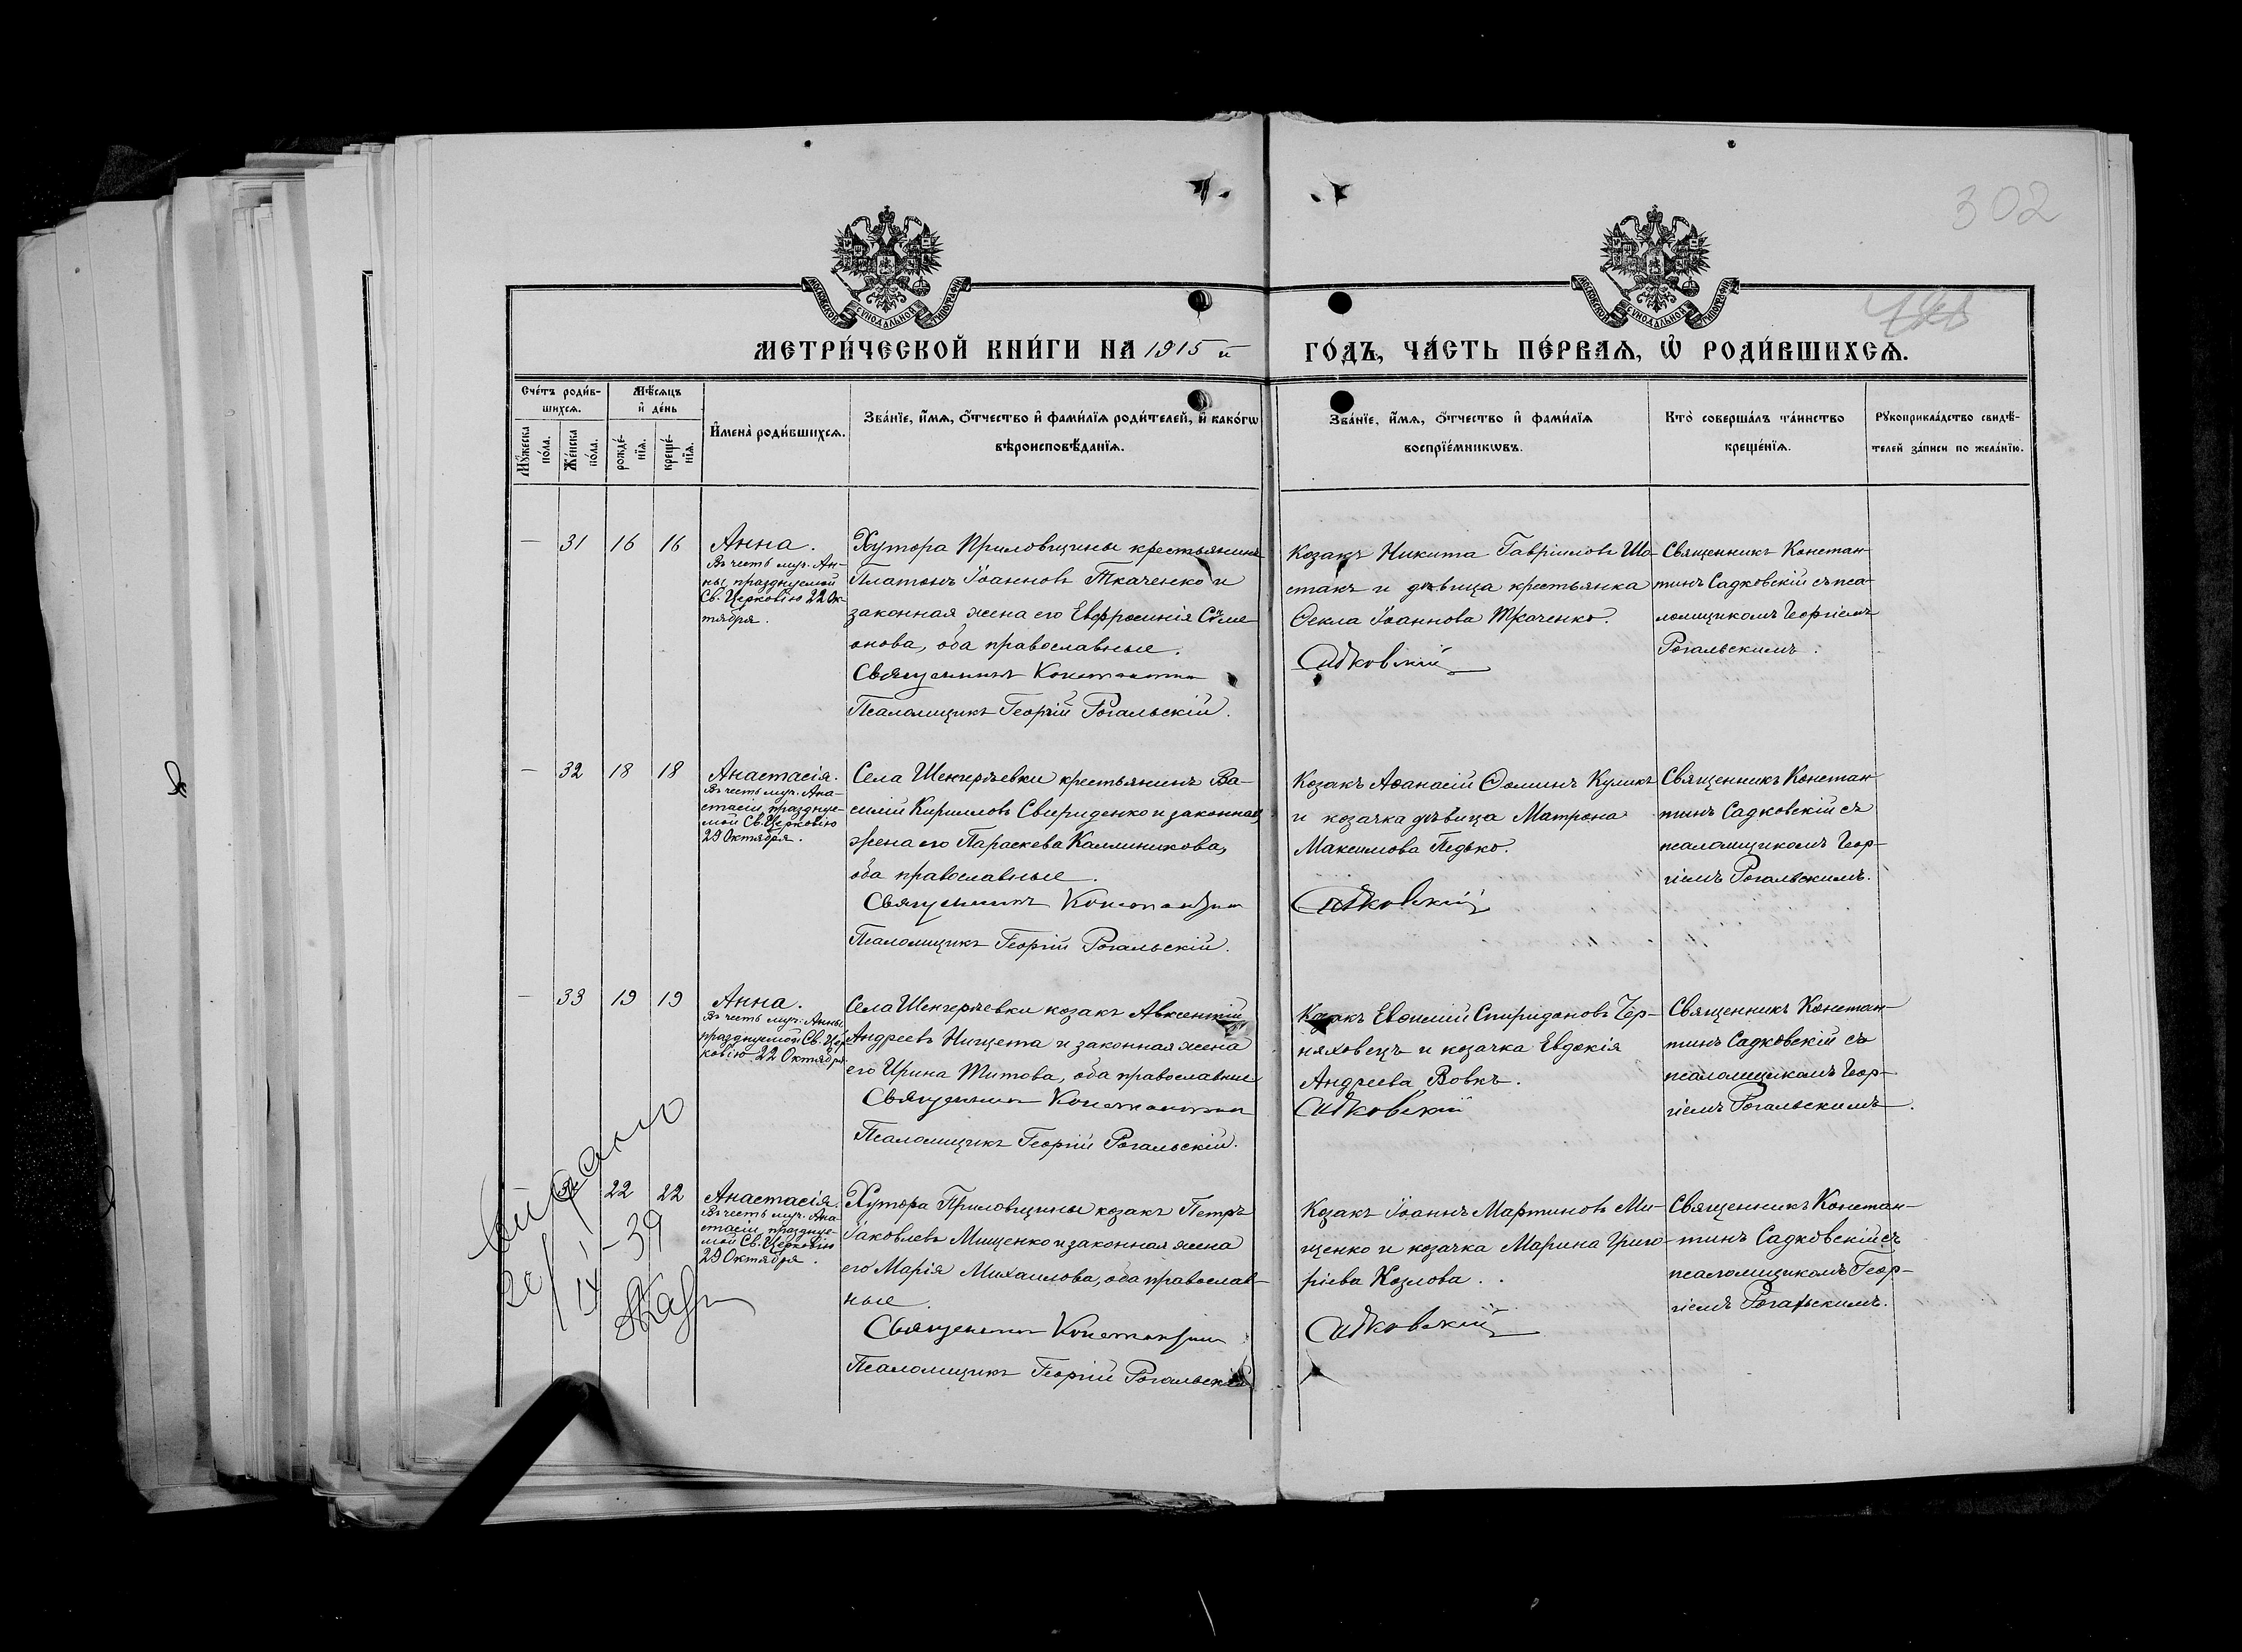 302
МОСКОВСКОЙ СѴНОДАЛЬНОЙ ТИПОГРАФІИ
МОСКОВСКОЙ СѴНОДАЛЬНОЙ ТИПОГРАФІИ
МЕТРИ́ЧЕСКОЙ КНИ́ГИ НА 1915 й ГО́ДЪ, ЧА́СТЬ ПЕ́РВАѦ, Ѡ҆ РОДИ́ВШИХСѦ.
Сче́тъ роди́в-
шихсѧ.
Мꙋ́жеска
по́ла.
Же́нска
по́ла.
Мѣ́сѧцъ
и҆ де́нь
рожде́-
нїѧ.
креще́-
нїѧ.
И҆мена̀ роди́вшихсѧ.
Зва́нїе, и҆́мѧ, ѻ҆́тчество и҆ фами́лїѧ роди́телей, и҆ како́гѡ
вѣроисповѣ́данїѧ.
Зва́нїе, и҆́мѧ, ѻ҆́тчество и҆ фами́лїѧ
воспрїе́мникѡвъ.
Кто̀ соверша́лъ та́инство
креще́нїѧ.
Рꙋкоприкла́дство свидѣ́-
телей за́писи по жела́нїю.
— 31 16 16
Анна.
Въ честь муч. Ан-
ны, празднуемой
Св. Церковію 22 Ок-
тября.
Хутора Приловщины крестьянинъ
Платонъ Іоанновъ Ткаченко и
законная жена его Евфросинія Симе-
онова, оба православные.
Священникъ Константин
Псаломщикъ Георгій Рогальскій.
Козакъ Никита Гавріиловъ Ше-
стакъ и дѣвица крестьянка
Ѳекла Іоаннова Ткаченко.
Садковскій
Священникъ Констан-
тинъ Садковскій съ пса-
ломщикомъ Георгіемъ
Рогальскимъ.
— 32 18 18
Анастасія.
Въ честь муч. Ана-
стасіи, праздвуе-
мой Св. Церковію
29 Октября.
Села Шенгерѣевки крестьянинъ Ва-
силій Кирилловъ Свириденко и законная
жена его Параскева Каллиникова,
оба православные.
Священникъ Константин
Псаломщикъ Георгій Рогальскій.
Козакъ Аѳанасій Ѳоминъ Куликъ
и козачка дѣвица Матрона
Максимова Педько.
Садковскій
Священникъ Констан-
тинъ Садковскій съ
псаломщикомъ Геор-
гіемъ Рогальскимъ.
— 33 19 19
Анна.
Въ честь муч. Анны,
празднуемой Св. Цер-
ковію 22 Октября.
Села Шенгерѣевки козакъ Авксентій
Андреевъ Нищета и законная жена
его Ирина Титова, оба православные
Священникъ Константин
Псаломщикъ Георгій Рогальскій.
Козакъ Евѳимій Спиридоновъ Чер-
няховецъ и козачка Евдокія
Андреева Вовкъ.
Садковскій
Священникъ Констан-
тинъ Садковскій съ
псаломщикомъ Геор-
гіемъ Рогальскимъ.
22 22
Анастасія.
Въ честь муч. Ана-
стасіи, праздвуе-
мой Св. Церковію
29 Октября.
Хутора Приловщины козакъ Петръ
Іаковлевъ Мищенко и законная жена
его Марія Михаилова, оба православ-
ные.
Священникъ Константин
Псаломщикъ Георгій Рогальскій
Козакъ Іоаннъ Мартиновъ Ми-
щенко и козачка Марина Григо-
ріева Козлова.
Садковскій
Священникъ Констан-
тинъ Садковскій съ
псаломщикомъ Геор-
гіемъ Рогальскимъ.
Выдано
39